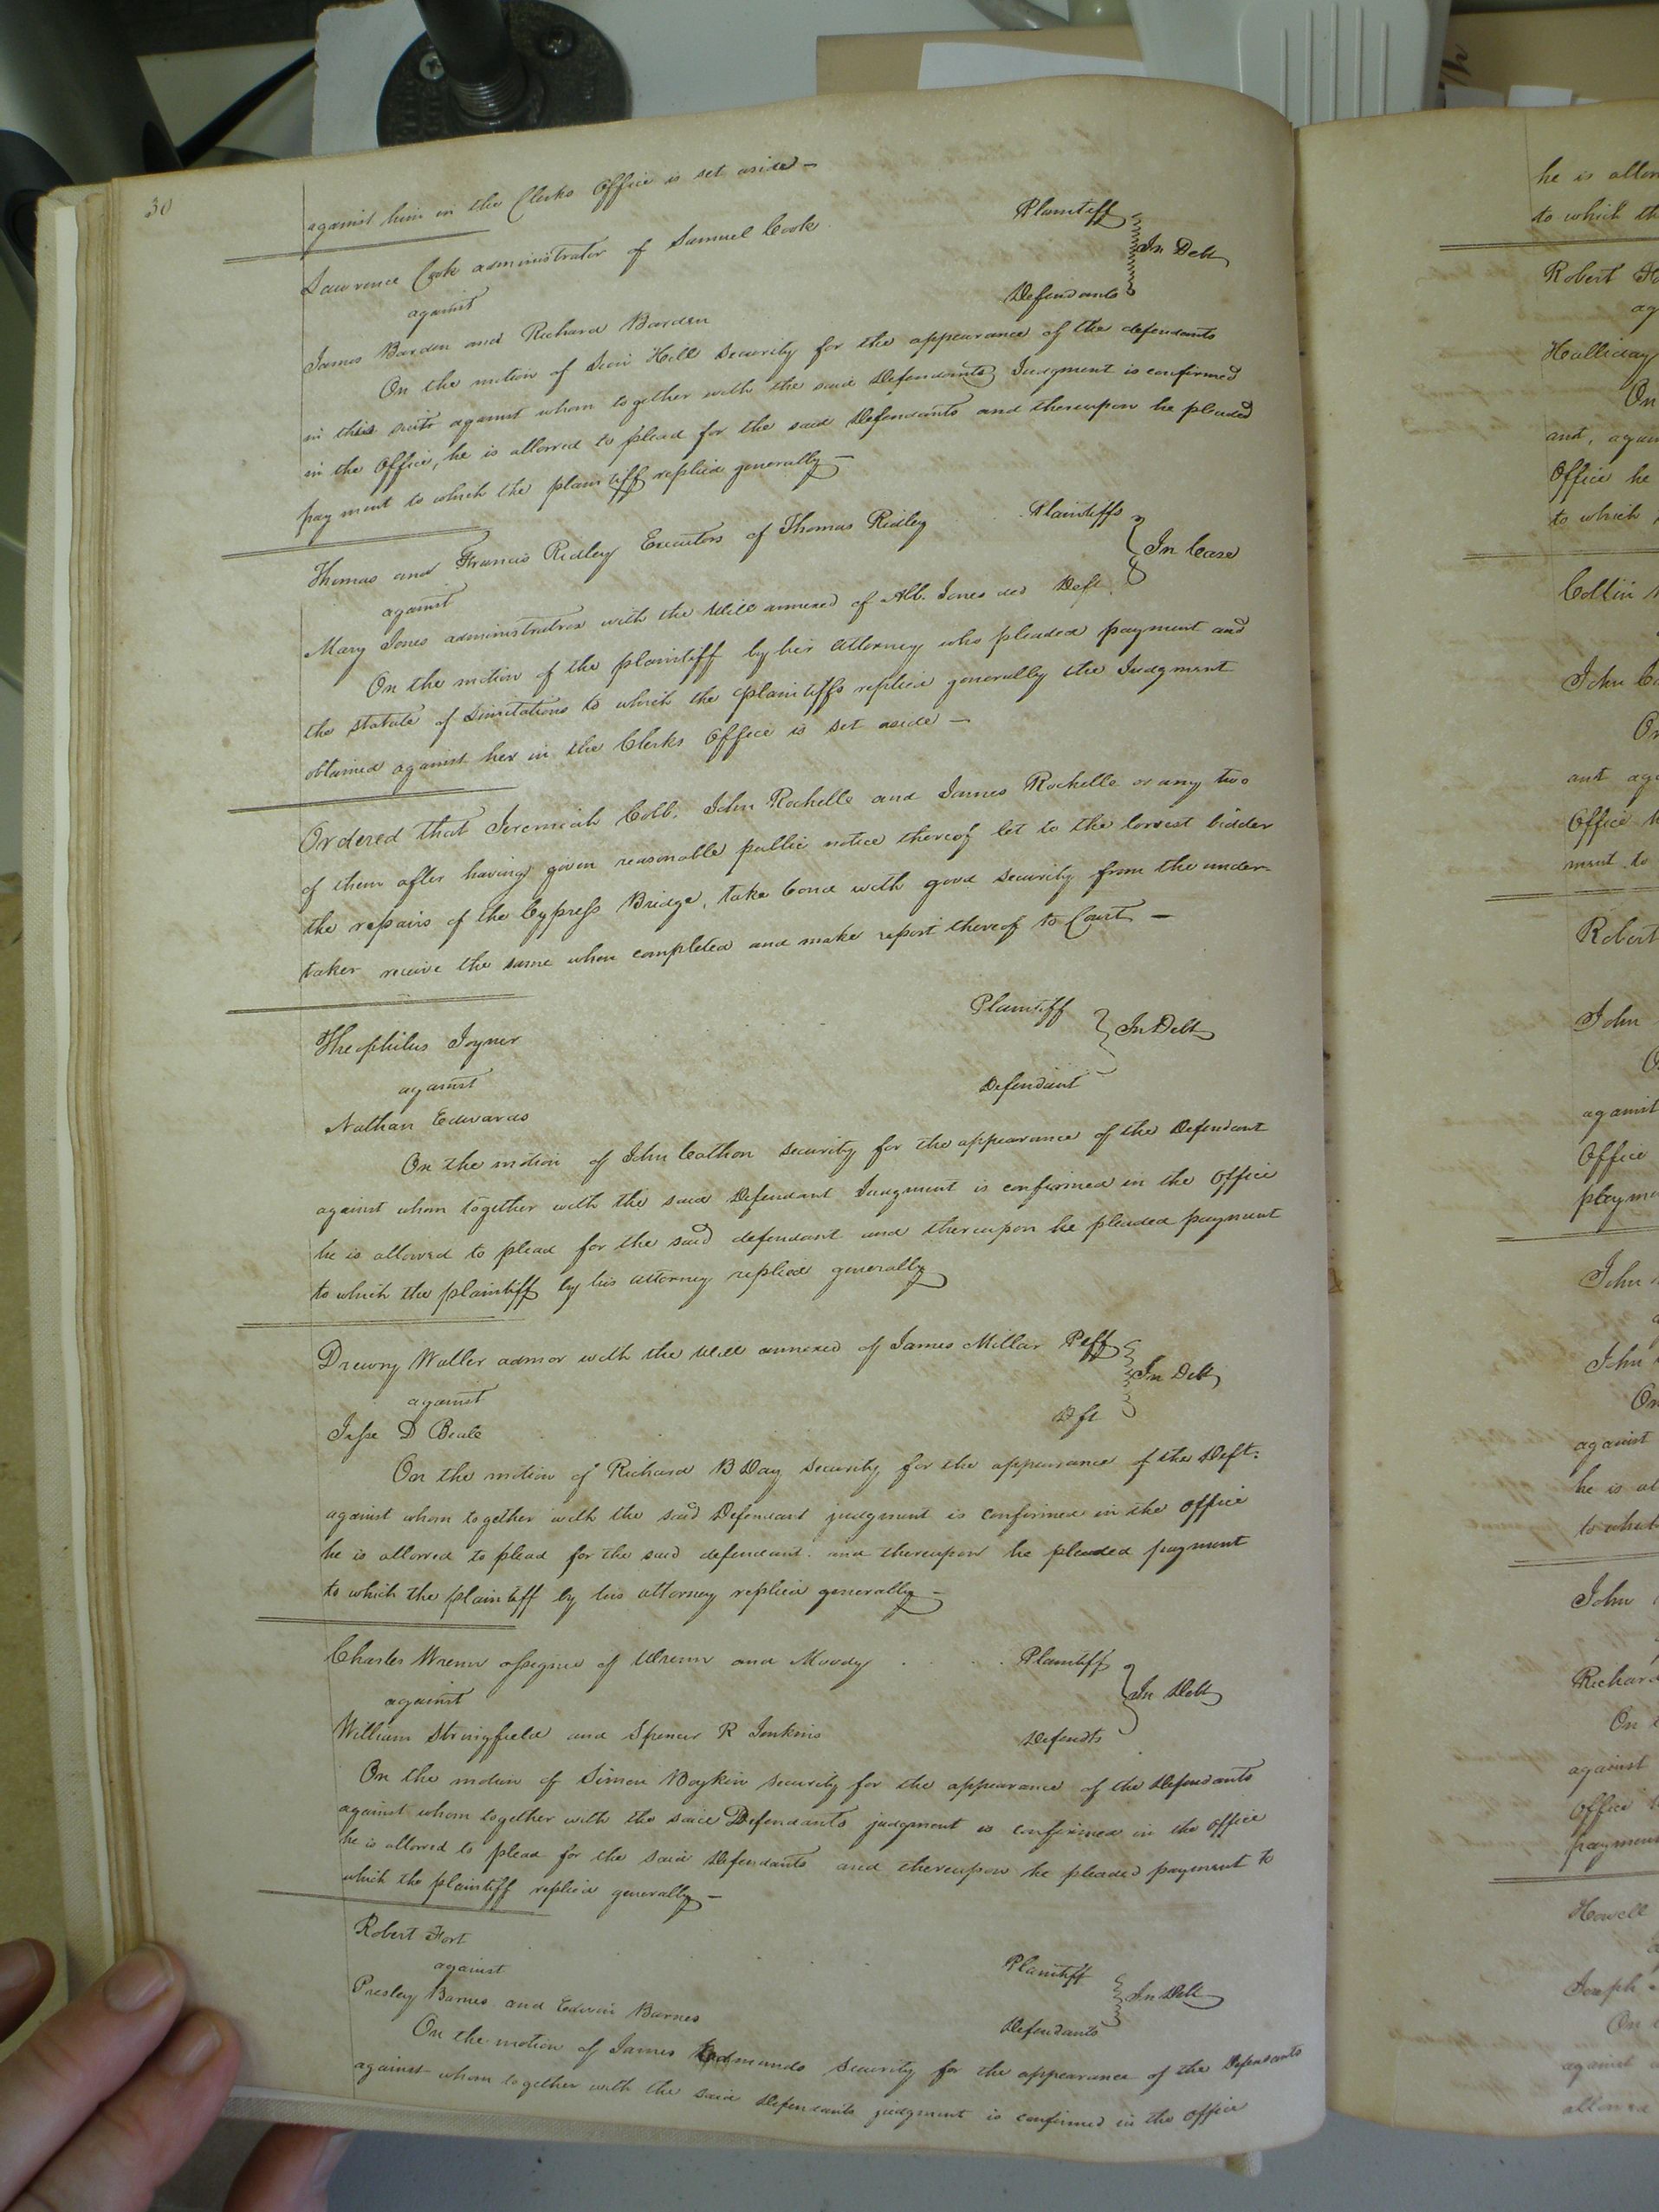 30
against him in the Clerks Office is set aside —
Lawrence Cook administrator of Samuel Cook Plaintiff
against In Debt
James Barden and Richard Barden Defendants
On the motion of Sion Hill security for the appearance of the defendants
in this suit against whom together with the said Defendants Judgment is confirmed
in the Office, he is allowed to plead for the said Defendants and thereupon he pleaded
payment to which the plaintiff replied generally —
Thomas and Francis Ridley Executors of Thomas Ridley Plaintiffs
against In Case
Mary Jones administratrix with the Will annexed of Alb. Jones decd Deft.
On the motion of the plaintiff by her attorney who pleaded payment and
the statute of Limitations to which the plaintiffs replied generally the Judgment
obtained against her in the Clerks Office is set aside —
Ordered that Jeremiah Cobb, John Rochelle and James Rochelle or any two
of them after having given reasonable public notice thereof let to the lowest bidder
the repairs of the Cypress Bridge, take bond with good security from the under-
taker receive the same when completed and make report thereof to Court —
Theophilus Joyner Plaintiff
against In Debt
Nathan Edwards Defendant
On the motion of John Cathon security for the appearance of the Defendant
against whom together with the said Defendant Judgment is confirmed in the Office
he is allowed to plead for the said defendant and thereupon he pleaded payment
to which the plaintiff by his attorney replied generally
Drewry Waller admor with the Will annexed of James Millar Peff
against In Debt
Jesse D Beale Dft
On the motion of Richard B Day security for the appearance of the Deft.
against whom together with the said Defendant judgment is confirmed in the office
he is allowed to plead for the said defendant and thereupon he pleaded payment
to which the plaintiff by his attorney replied generally —
Charles Wrenn assignee of Wrenn and Moody Plaintiff
against In Debt
William Stringfield and Spencer R Jenkins Defendts
On the motion of Simon Boykin security for the appearance of the Defendants
against whom together with the said Defendants judgment is confirmed in the office
he is allowed to plead for the said Defendants and thereupon he pleaded payment to
which the plaintiff replied generally —
Robert Fort Plaintiff
against In Debt
Presley Barnes and Edwin Barnes Defendants
On the motion of James Edmunds security for the appearance of the Defendants
against whom together with the said Defendants judgment is confirmed in the office
he is
to which
Robert
Halliday
On
and, again
Office he
to which
Collin
John
ant
Office
ment to
Robert
John
against
Office
payme
John
John
On
against
he is
John
Richard
On
against
Office
payment
Howell
Joseph
On
against
allowed